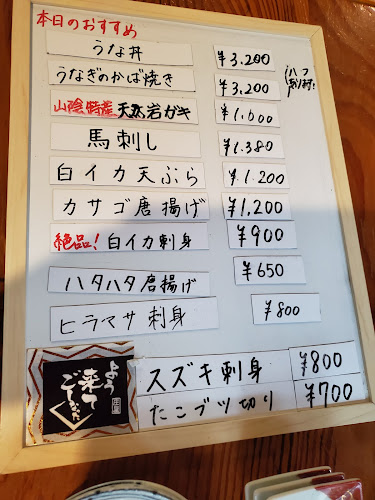 本日のおすすめ
うな丼 ¥3,200
うなぎのかば焼き ¥3,200
山陰特産 天然岩ガキ ¥1,000
馬刺し ¥1,380
白イカ天ぷら ¥1.200
カサゴ唐揚げ ¥1,200
絶品!白イカ刺身 ¥900
ハタハタ唐揚げ ¥650
ヒラマサ刺身 ¥800
スズキ刺身 ¥800
たこブツ切り ¥700
よう
来て
ごしなった